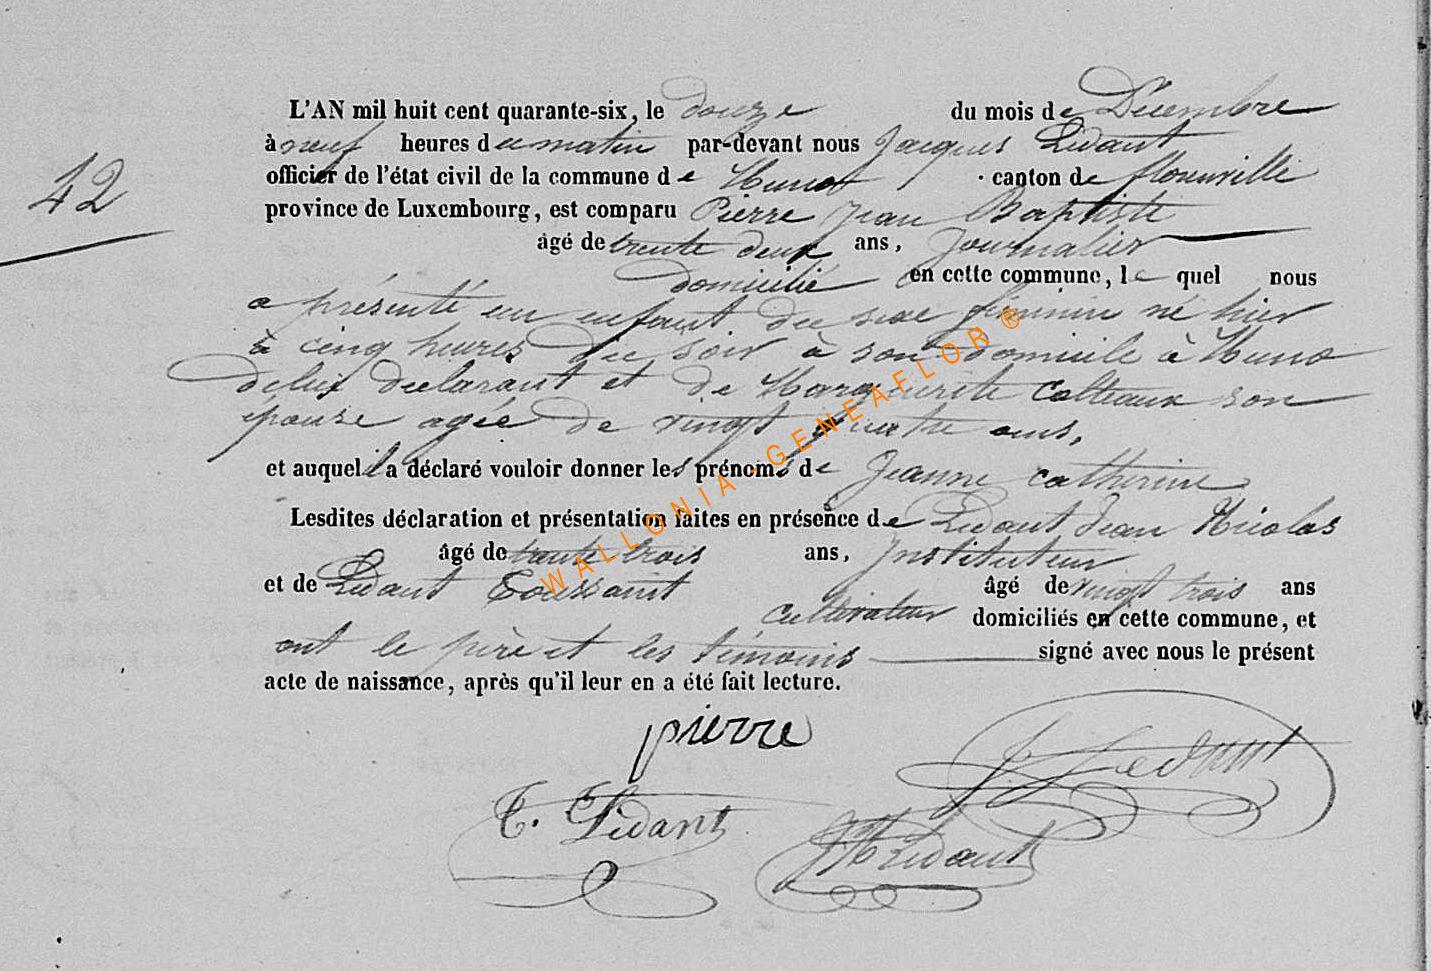 42
L'AN mil huit cent quarante-six, le douze du mois de Décembre
à neuf heures du matin par-devant nous Jacques Lidant
officier de l'état civil de la commune de Muno canton de florenville
province de Luxembourg, est comparu Pierre Jean Baptiste
âgé de trente deux ans, Journalier
domicilié en cette commune, le quel nous
a présenté un enfant du sexe féminin né hier
à cinq heures du soir à son domicile à Muno
de lui déclarant et de Marguerite Colteaux son
épouse agée de vingt quatre ans,
et auquel il a déclaré vouloir donner les prénoms de Jeanne catherine
Lesdites déclaration et présentation faites en présence de Lidant Jean Nicolas
âgé de trente trois ans, Instituteur
et de Lidant Toussaint âgé de vingt trois ans
cultivateur domiciliés en cette commune, et
ont le père et les témoins signé avec nous le présent
acte de naissance, après qu'il leur en a été fait lecture.
pierre
J Lidant
T. Lidant
JN Lidant
WALLONIA-GENEAFLOR ®